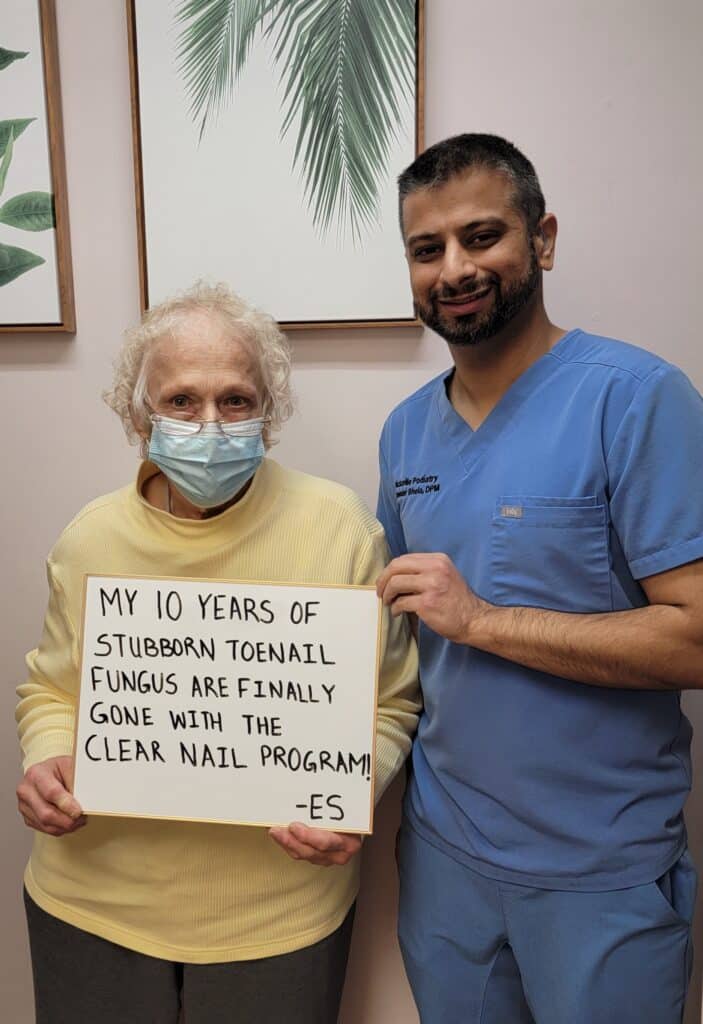 MY 10 YEARS OF
STUBBORN TOENAIL
FUNGUS ARE FINALLY
GONE WITH THE
CLEAR NAIL PROGRAM!
-ES
Podiatry
DPM